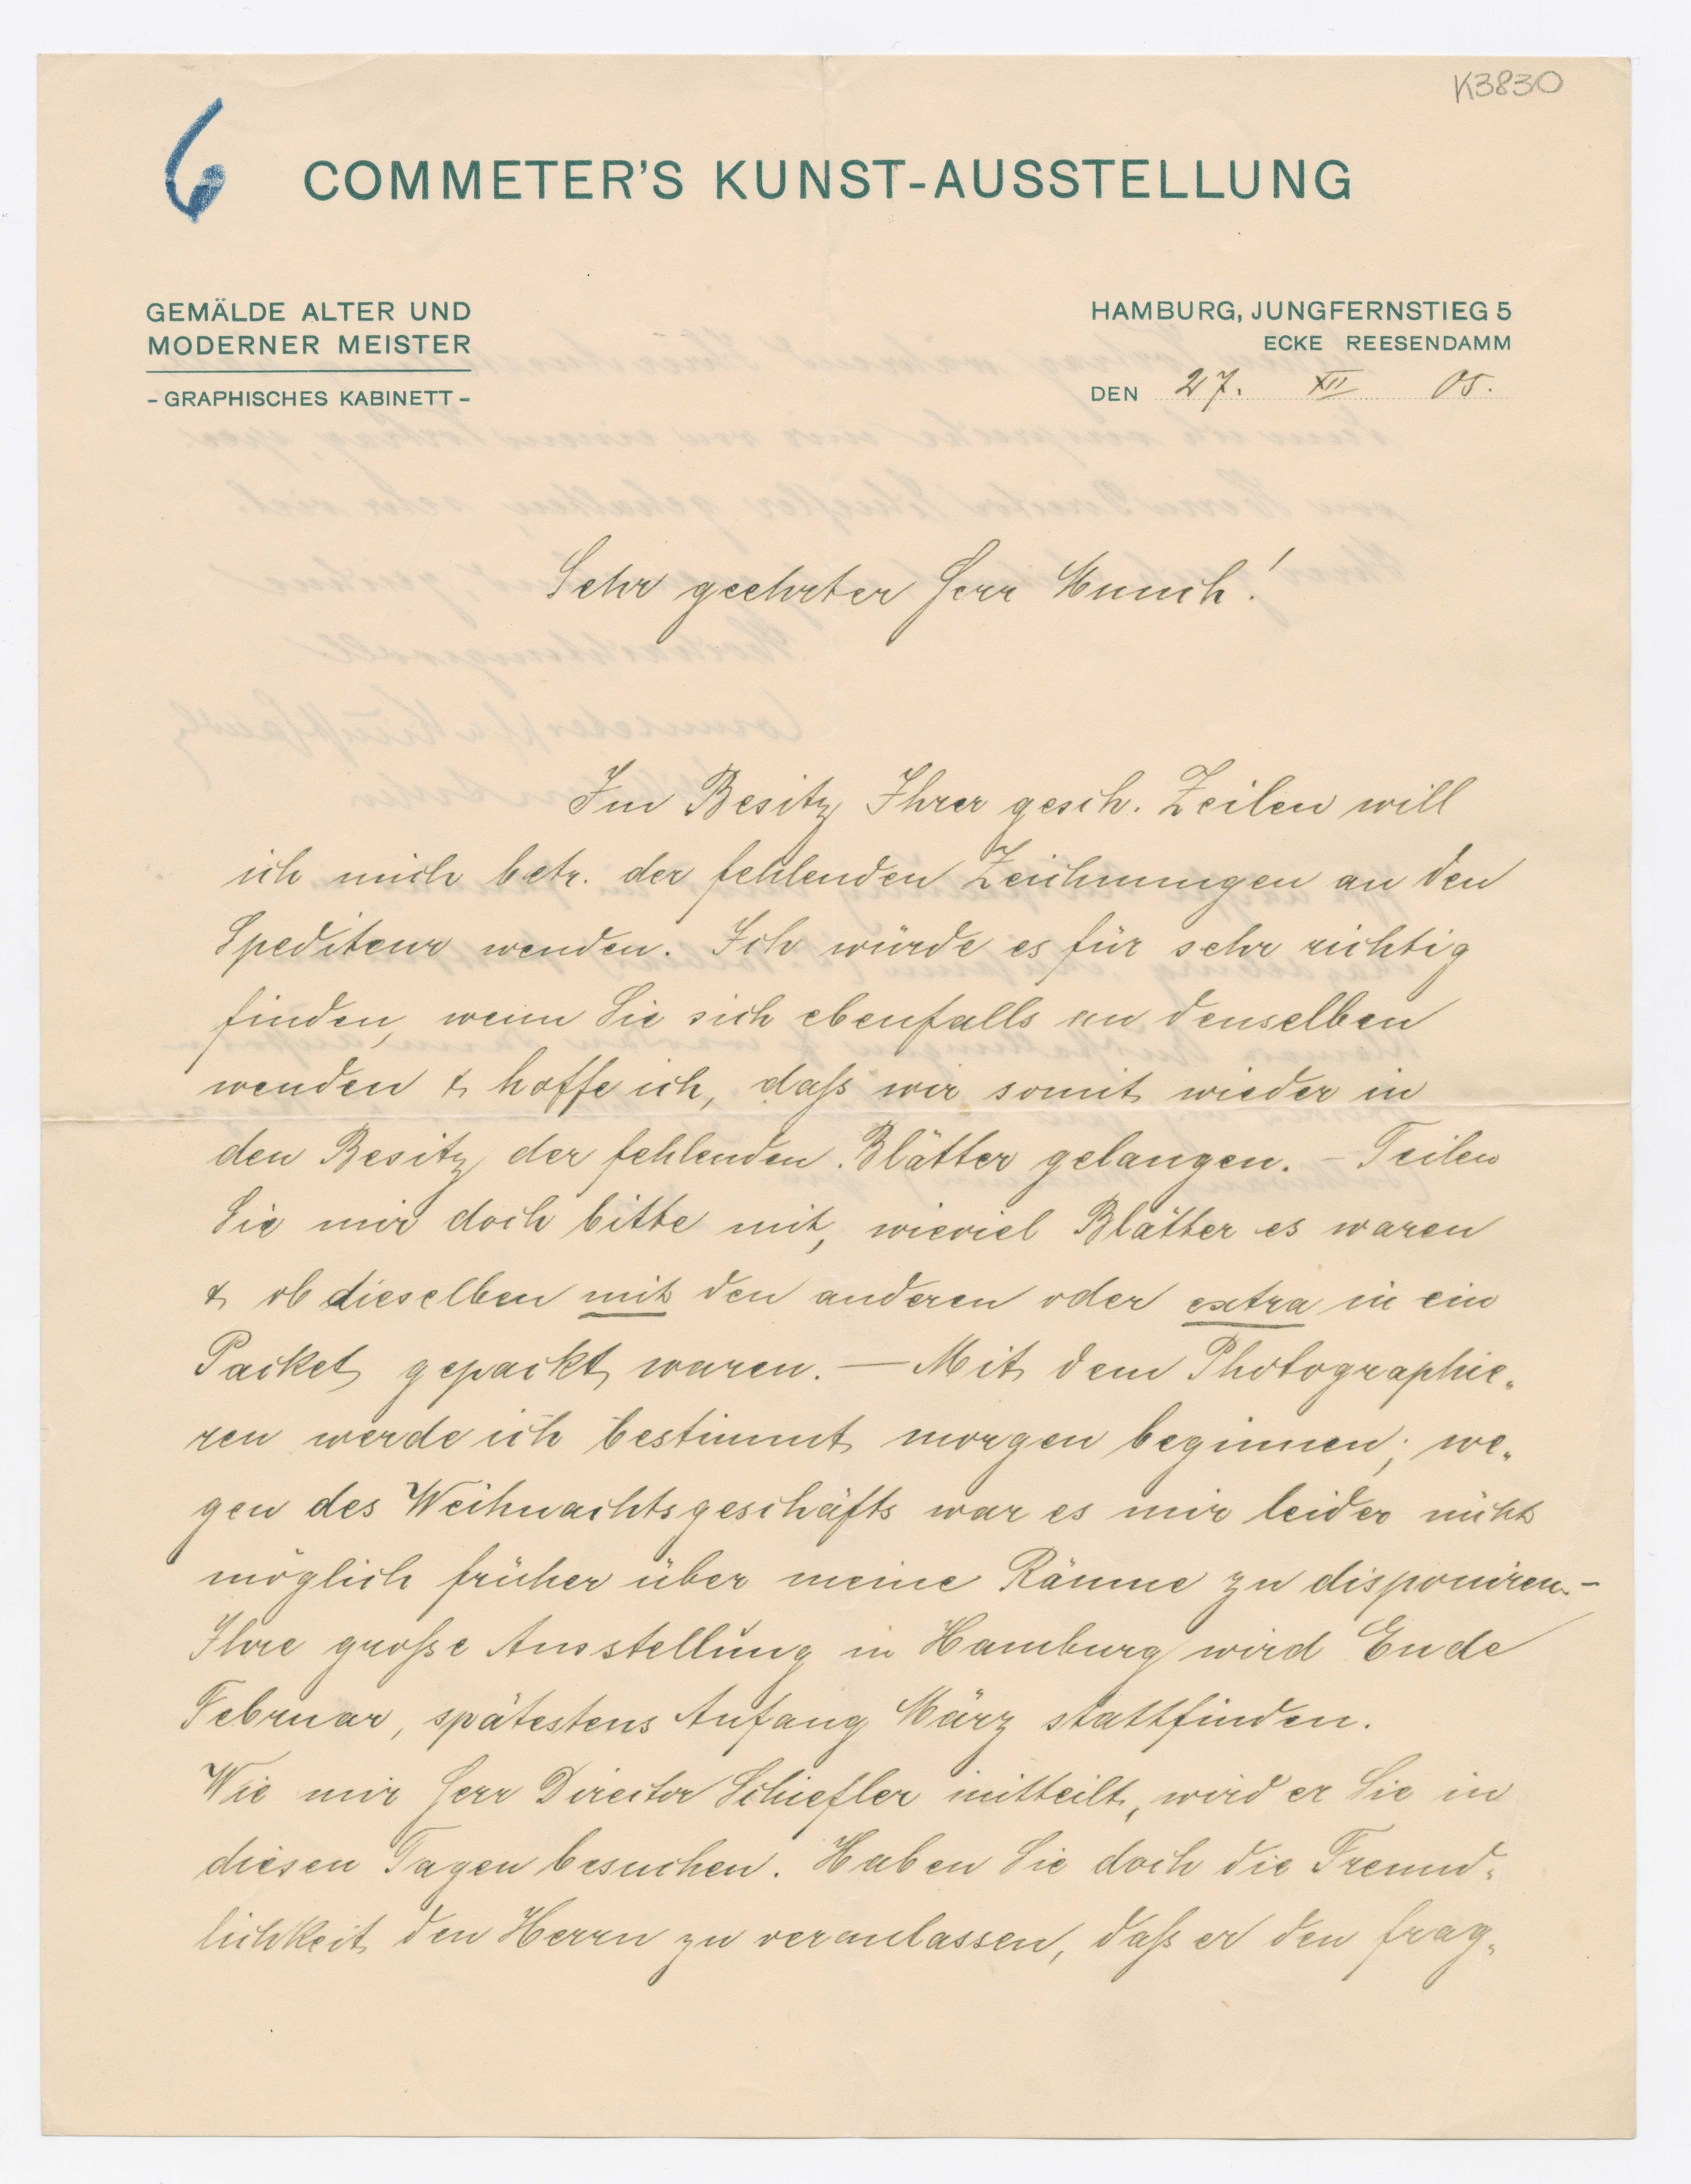 K3830
6
COMMETER'S KUNST-AUSSTELLUNG
GEMÄLDE ALTER UND
MODERNER MEISTER
- GRAPHISCHES KABINETT -
HAMBURG, JUNGFERNSTIEG 5
ECKE REESENDAMM
DEN 27. XII 05.
Sehr geehrter Herr Munch!
Im Besitz Ihrer gesch. Zeilen will
ich mich betr. der fehlenden Zeichnungen an den
Spediteur wenden. Ich würde es für sehr richtig
finden, wenn Sie sich ebenfalls an denselben
wenden & hoffe ich, daß wir somit wieder in
den Besitz der fehlenden Blätter gelangen. – Teilen
Sie mir doch bitte mit, wieviel Blätter es waren
& ob dieselben mit den anderen oder extra in ein
Packet gepackt waren. — Mit dem Photographie-
ren werde ich bestimmt morgen beginnen; we-
gen des Weihnachtsgeschäfts war es mir leider nicht
möglich früher über meine Räume zu disponiren. –
Ihre große Ausstellung in Hamburg wird Ende
Februar, spätestens Anfang März stattfinden.
Wie mir Herr Director Schiefler mitteilt, wird er Sie in
diesen Tagen besuchen. Haben Sie doch die Freund-
lichkeit den Herrn zu veranlassen, daß er den frag-